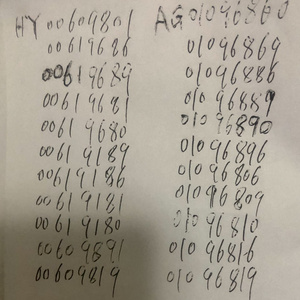 HY 00609801
00619626
00619689
00619681
00619680
00619189
00619186
00619181
00619180
00609891
00609819
AG 01096860
01096869
01096886
01096889
01096890
01096896
01096806
01096809
01096810
01096816
01096819